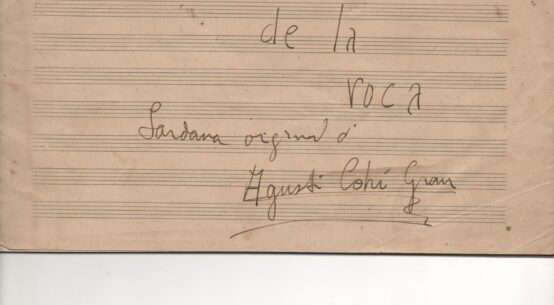 de la
roca
Sardana original d'
Agustí Cohi Grau